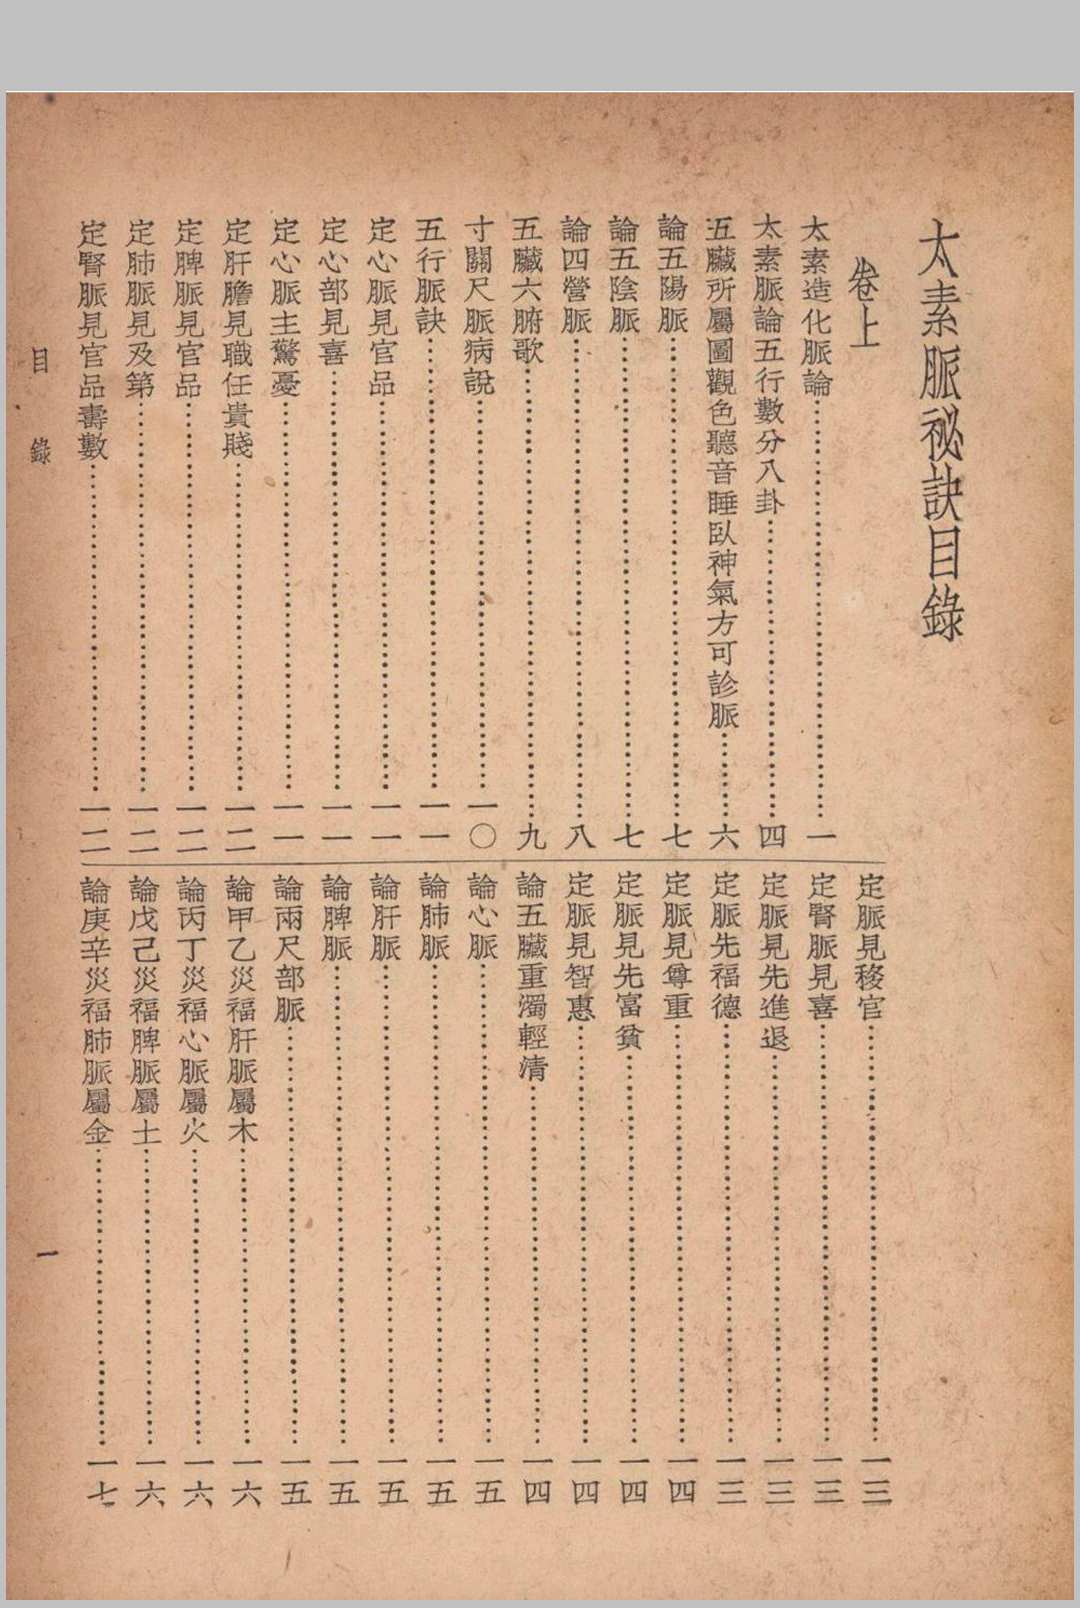 太素脈祕訣目錄
卷上
太素造化脈論⋯⋯一
太素脈論五行數分八卦⋯⋯四
五臟所屬圖觀色聽音睡臥神氣方可診脈⋯⋯六
論五陽脈⋯⋯七
論五陰脈⋯⋯七
論四營脈⋯⋯八
五臟六腑歌⋯⋯九
寸關尺脈病說⋯⋯一〇
五行脈訣⋯⋯一一
定心脈見官品⋯⋯一一
定心部見喜⋯⋯一一
定心脈主驚憂⋯⋯一一
定肝膽見職任貴賤⋯⋯一二
定脾脈見官品⋯⋯一二
定肺脈見及第⋯⋯一二
定腎脈見官品壽數⋯⋯一二
定脈見移官⋯⋯一三
定腎脈見喜⋯⋯一三
定脈見先進退⋯⋯一三
定脈先福德⋯⋯一三
定脈見尊重⋯⋯一四
定脈見先富貧⋯⋯一四
定脈見智惠⋯⋯一四
論五臟重濁輕清⋯⋯一四
論心脈⋯⋯一五
論肺脈⋯⋯一五
論肝脈⋯⋯一五
論脾脈⋯⋯一五
論兩尺部脈⋯⋯一五
論甲乙災福肝脈屬木⋯⋯一六
論丙丁災福心脈屬火⋯⋯一六
論戊己災福脾脈屬土⋯⋯一六
論庚辛災福肺脈屬金⋯⋯一七
目錄
一